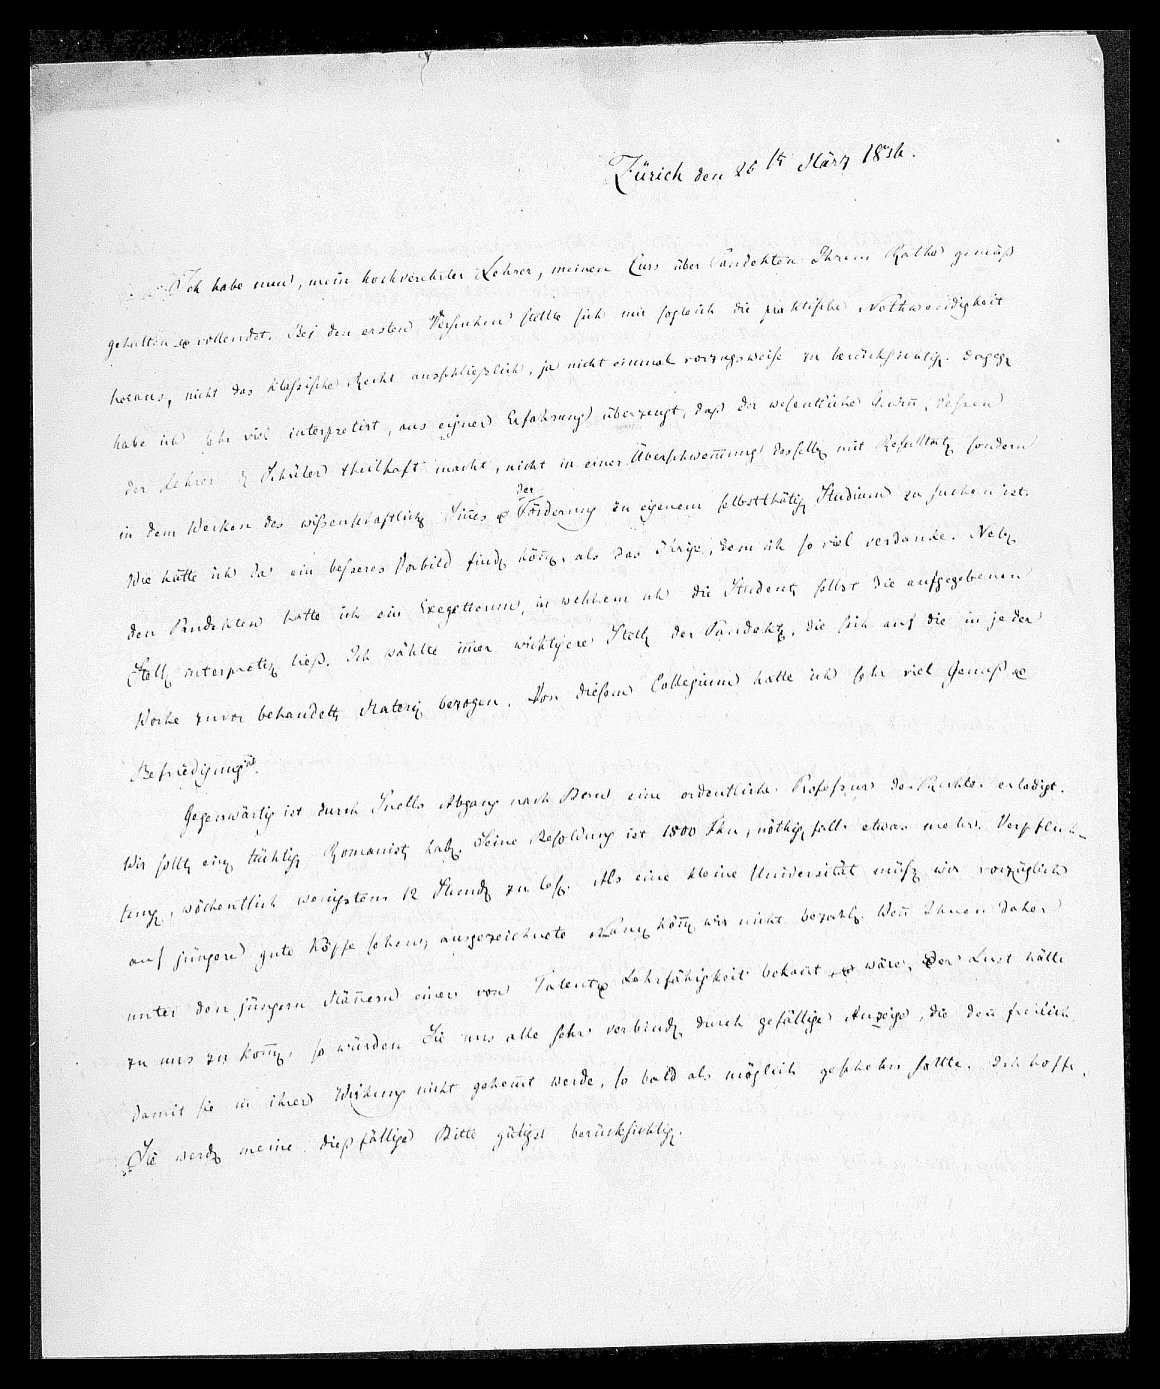 Zürich den 26 ft März 1834.
Ich habe nun, mein hochverehrter Lehrer, meinen Curs über Pandekten Ihrem Rathe gemäß
gehalten & vollendet. Bei den ersten Versuchen stellte sich mir sogleich die praktische Nothwendigkeit
heraus, nicht das klassische Recht ausschließlich, ja nicht einmal vorzugsweise zu berücksichtig. Dageg
habe ich sehr viel interpretirt, aus eigner Erfahrung überzeugt, daß der wesentliche Gewiñ, dessen
der Lehrer d Schüler theilhaft macht, nicht in einer Überschwem̃ung desselb mit Resultat, sondern
in dem Wecken des wißenschaftlich Siñes & der Förderung zu eigenem selbstthätig Studium zu suchen ist.
Wie hätte ich da ein beßeres Vorbild find köñ, als das Ihrige, dem ich so viel verdanke. Neb
den Pandekten hatte ich ein Exegeticum, in welchem ich die Student selbst die aufgegebenen
Stell interpretir ließ. Ich wählte im̃er wichtigere Stell der Pandekt, die sich auf die in jeder
Woche zuvor behandelt Materi bezogen. Von diesem Collegium hatte ich sehr viel Genuß &
Befriedigung.
Gegenwärtig ist durch Snells Abgang nach Bern eine ordentliche Professur des Rechtes erledigt.
Wir sollt ein tüchtig Romanist hab. Seine Besoldung ist 1800 Fkn, nöthig falls etwas mehr. Verpflich-
tung, wöchentlich wenigstens 12 Stund zu les. Als eine kleine Universität müss wir vorzüglich
auf jüngere gute Köpfe sehen, ausgezeichnete köñ wir nicht bezahl. Weñ Ihnen daher
unter den jüngern Mäñern einer von Talent & Lehrfähigkeit bekañt & wäre, der Lust hätte
zu uns zu kom̃, so würden Sie uns alle sehr verbind durch gefällige Anzeige, die deñ freilich,
damit sie in ihrer Wirkung nicht gehem̃t werde, so bald als möglich geschehen sollte. Ich hoffe,
Sie werd meine dießfällige Bitte gütigst berücksichtig.